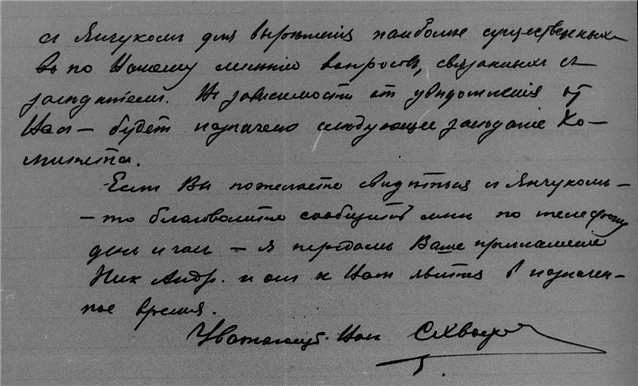 съ Янчукомъ для выясненія наиболѣе существенныхъ
въ по Вашему мнѣнію вопросовъ, связанныхъ съ
засѣданіемъ. Въ зависимости отъ увѣдомленія отъ
Васъ – будетъ назначено слѣдующее засѣданіе Ко-
митета.
Если Вы пожелаете свидѣться съ Янчукомъ –
– то благоволите сообщить мнѣ по телефону
день и часъ – я передамъ Ваше приглашеніе
Ник. Андр. и онъ къ Вамъ явится въ назначен-
ное время.
Уважающій Васъ